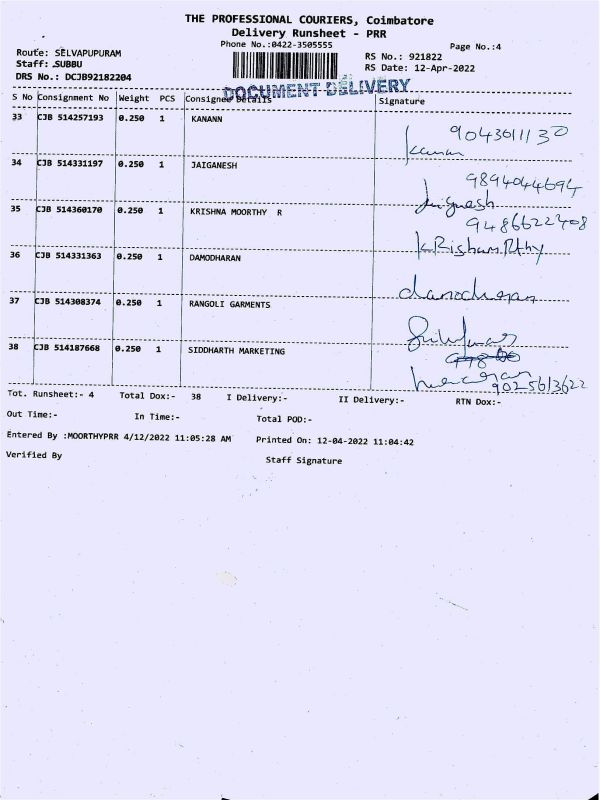 THE PROFESSIONAL COURIERS, Coimbatore
Delivery Runsheet - PRR
Phone No.:0422-3505555
Page No.:4
Route: SELVAPUPURAM
Staff: SUBBU
DRS No.: DCJB92182204
RS No.: 921822
RS Date: 12-Apr-2022
DOCUMENT DELIVERY
S No Consignment No Weight PCS Consignee Details Signature
33 CJB 514257193 0.250 1 KANANN
9043611130
34 CJB 514331197 0.250 1 JAIGANESH
9894044694
Jaiganesh
35 CJB 514360170 0.250 1 KRISHNA MOORTHY R
9486622408
36 CJB 514331363 0.250 1 DAMODHARAN
37 CJB 514308374 0.250 1 RANGOLI GARMENTS
38 CJB 514187668 0.250 1 SIDDHARTH MARKETING
9025613622
Tot. Runsheet:- 4 Total Dox:- 38 I Delivery:- II Delivery:- RTN Dox:-
Out Time:- In Time:- Total POD:-
Entered By :MOORTHYPRR 4/12/2022 11:05:28 AM Printed On: 12-04-2022 11:04:42
Verified By Staff Signature